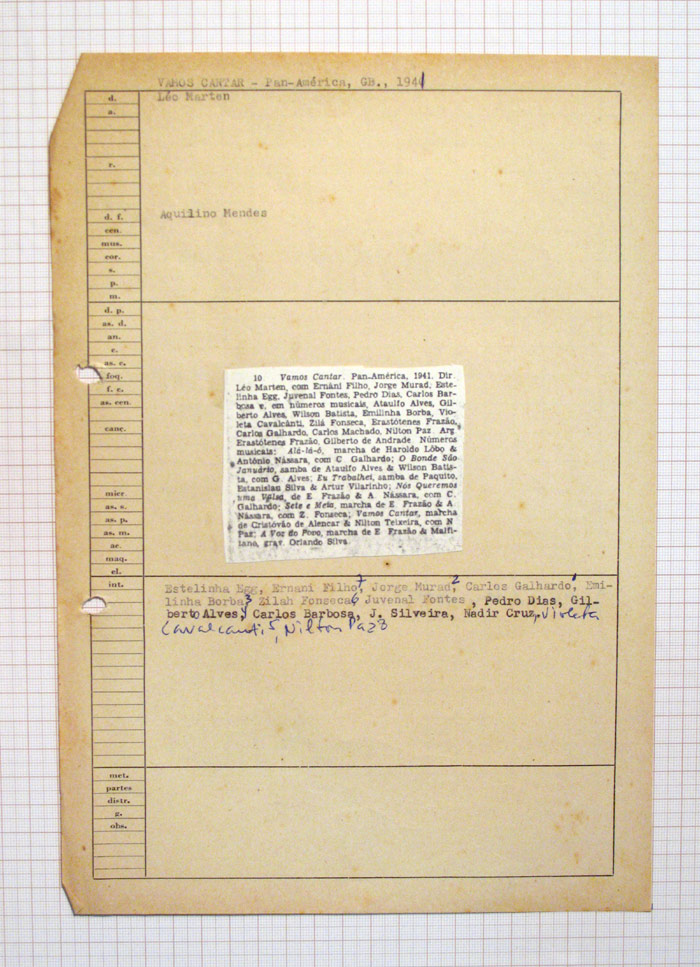 VAMOS CANTAR - Pan-América, GB., 1941
d. Léo Marten
a.
r.
d. f. Aquilino Mendes
cen.
mus.
cor.
s.
p.
m.
d. p.
as. d.
an.
c.
as. c.
foq.
f. c.
as. cen.
canç.
micr.
as. s.
as. p.
as. m.
ac.
maq.
el.
10 Vamos Cantar. Pan-América, 1941. Dir.
Léo Marten, com Ernâni Filho, Jorge Murad, Este-
linha Egg, Juvenal Fontes, Pedro Dias, Carlos Bar-
bosa e, em números musicais, Ataulfo Alves, Gil-
berto Alves, Wilson Batista, Emilinha Borba, Vio-
leta Cavalcânti, Zilá Fonseca, Erastótenes Frazão,
Carlos Galhardo, Carlos Machado, Nilton Paz. Arg.
Erastótenes Frazão, Gilberto de Andrade. Números
musicais: Alá-lá-ô, marcha de Haroldo Lôbo &
Antônio Nássara, com C. Galhardo; O Bonde São
Januário, samba de Ataulfo Alves & Wilson Batis-
ta, com G. Alves; Eu Trabalhei, samba de Paquito,
Estanislau Silva & Artur Vilarinho; Nós Queremos
uma Valsa, de E. Frazão & A. Nássara, com C.
Galhardo; Sete e Meia, marcha de E. Frazão & A.
Nássara, com Z. Fonseca; Vamos Cantar, marcha
de Cristóvão de Alencar & Nilton Teixeira, com N.
Paz; A Voz do Povo, marcha de E. Frazão & Malfi-
tano, grav. Orlando Silva.
int. Estelinha Egg, Ernani Filho,7 Jorge Murad,2 Carlos Galhardo,1 Emi-
linha Borba3 Zilah Fonseca6 Juvenal Fontes, Pedro Dias, Gil-
berto Alves,4 Carlos Barbosa, J. Silveira, Nadir Cruz, Violeta
Cavalcanti5, Nilton Paz8
met.
partes
distr.
g.
obs.